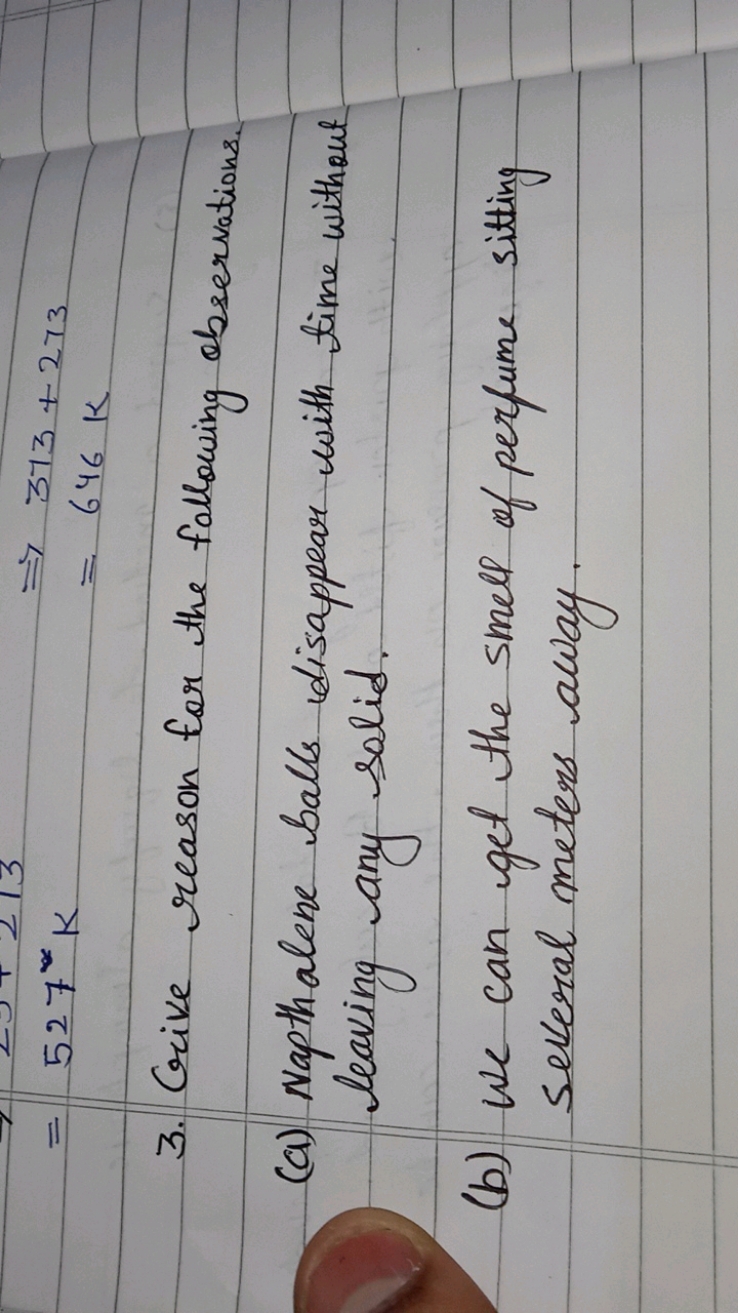 = 527 K
⇒ 373 + 273
= 646 K
3. Give reason for the following observations.
(a) Napthalene balls disappear with time without
leaving any solid.
(b) we can get the smell of perfume sitting
several meters away.